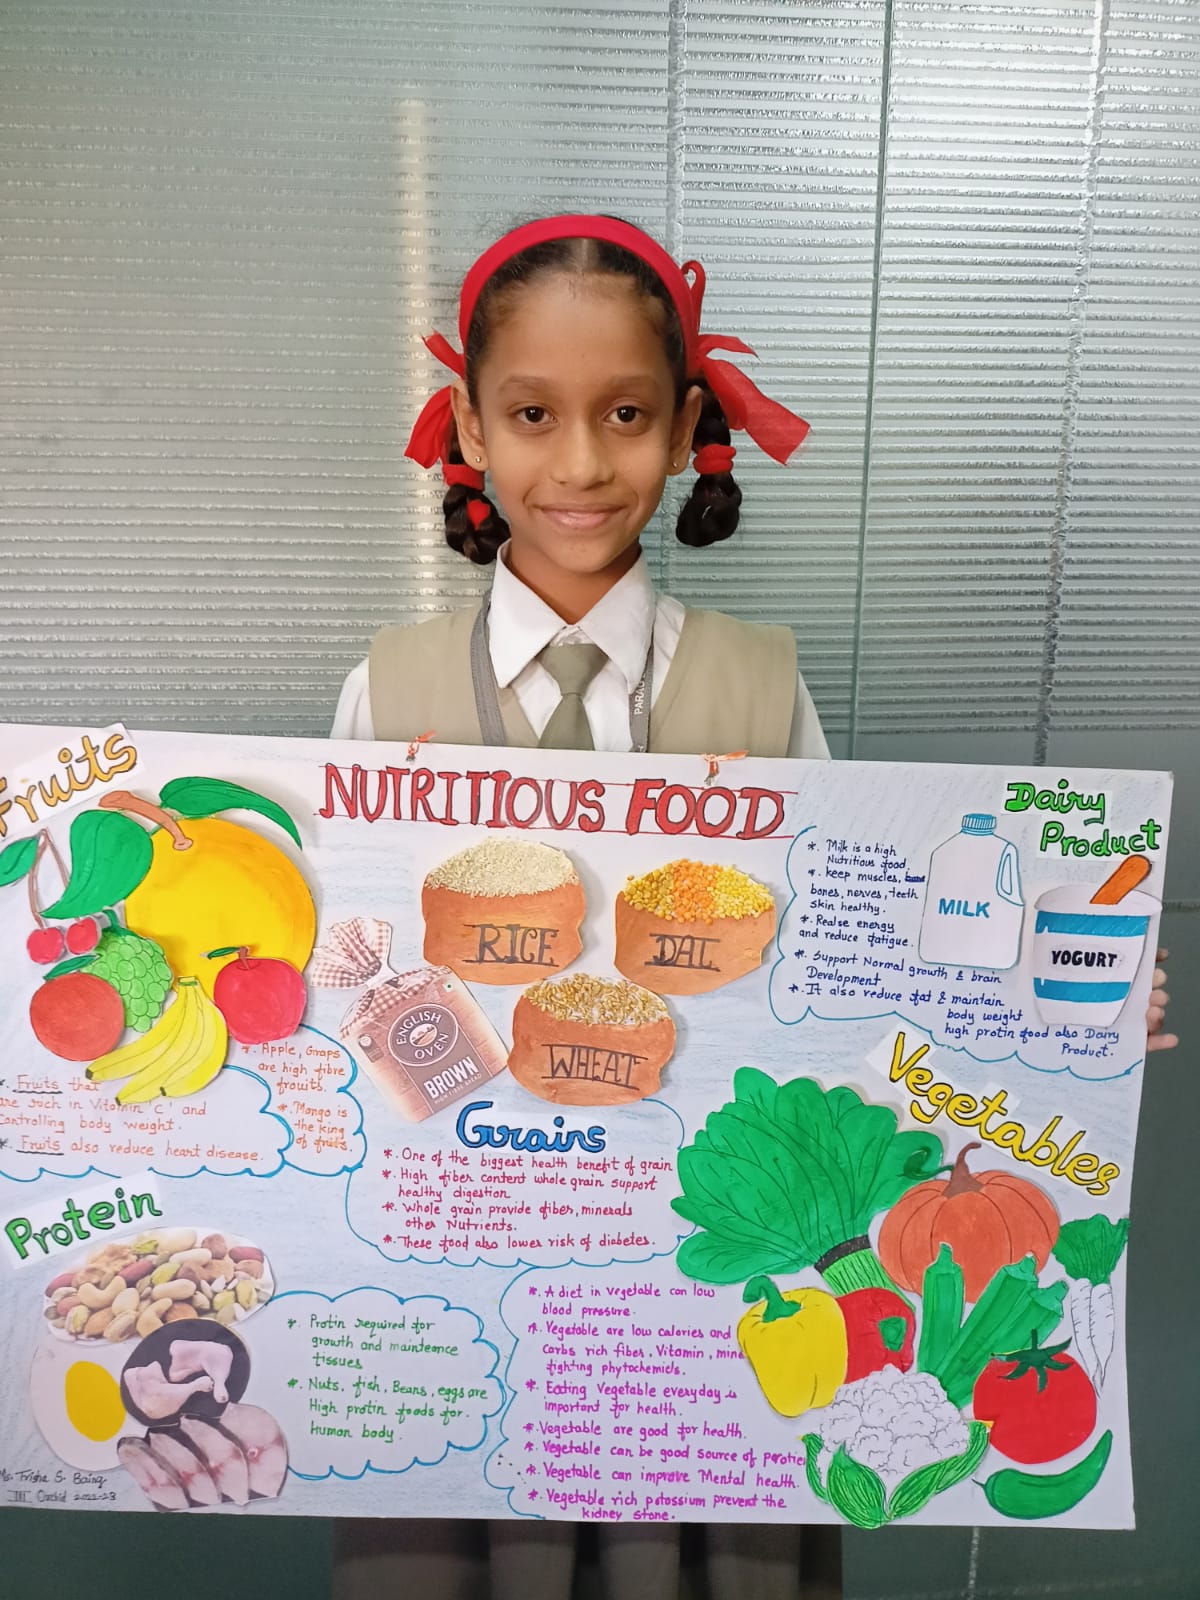 PARAG
NUTRITIOUS FOOD
Fruits
*. Apple, Graps
are high fibre
frouits.
*. Mango is
the king
of fruits.
*. Fruits that
are roch in Vitamin 'C' and
Controlling body weight.
*. Fruits also reduce heart disease.
RICE
DAL
WHEAT
ENGLISH
OVEN
BROWN
Grains
*. One of the biggest health benefit of grain
*. High fiber content whole grain support
healthy digestion
*. Whole grain provide fiber, minerals
other Nutrients.
*. These food also lower risk of diabetes.
Dairy
Product
*. Milk is a high
Nutritious food.
*. keep muscles,
bones, nerves, teeth
skin healthy.
*. Realse energy
and reduce fatigue.
*. Support Normal growth & brain
Development
*. It also reduce fat & maintain
body weight
high protin food also Dairy
Product.
MILK
YOGURT
Protein
*. Protin required for
growth and mainteance
tissues
*. Nuts, fish, Beans, eggs are
High protin foods for
human body.
Ms. Trisha S. Baing
III Orchid 2022-23
Vegetables
*. A diet in vegetable can low
blood pressure.
*. Vegetable are low calories and
carbs rich fiber, Vitamin, mine
fighting phytochemicls.
*. Eating Vegetable everyday is
important for health.
*. Vegetable are good for health.
*. Vegetable can be good source of protien
*. Vegetable can improve Mental health.
*. Vegetable rich potossium prevent the
kidney stone.